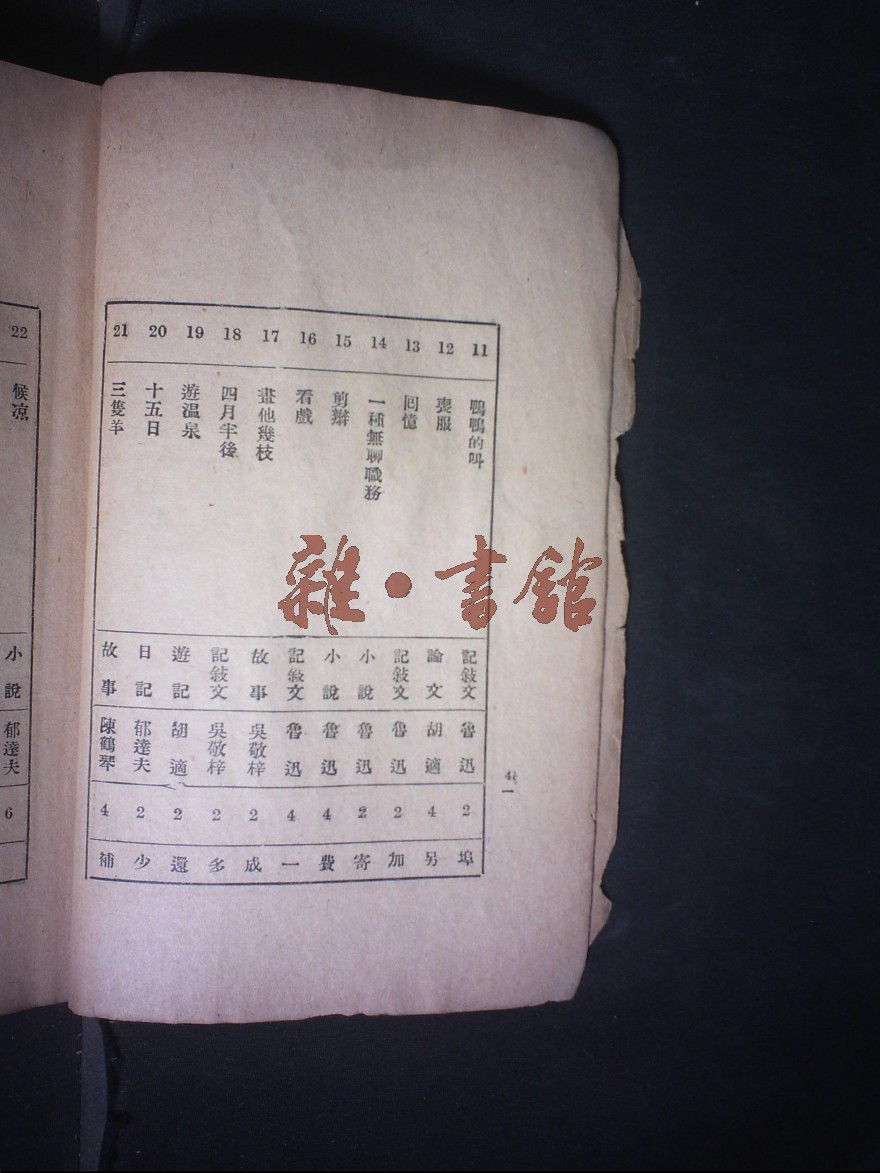 11 鴨鴨的叫 記敍文 魯迅 2 埠
12 喪服 論文 胡適 4 另
13 回憶 記敍文 魯迅 2 加
14 一種無聊職務 小說 魯迅 2 寄
15 剪辮 小說 魯迅 4 費
16 看戲 記敍文 魯迅 4 一
17 畫他幾枝 故事 吳敬梓 2 成
18 四月半後 記敍文 吳敬梓 2 多
19 遊温泉 遊記 胡適 2 還
20 十五日 日記 郁達夫 2 少
21 三隻羊 故事 陳鶴琴 4 補
22 候凉 小說 郁達夫 6
雜·書館